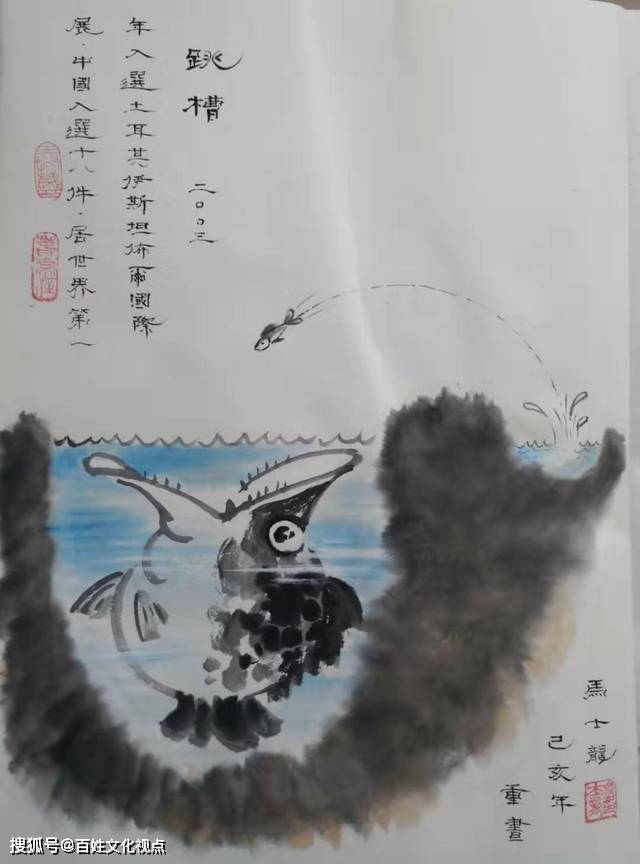 跳槽 二〇〇三
年入選土耳其伊斯坦佈爾國際
展·中國入選十八件·居世界第一
馬士龍
己亥年
重畫
搜狐号@百姓文化视点